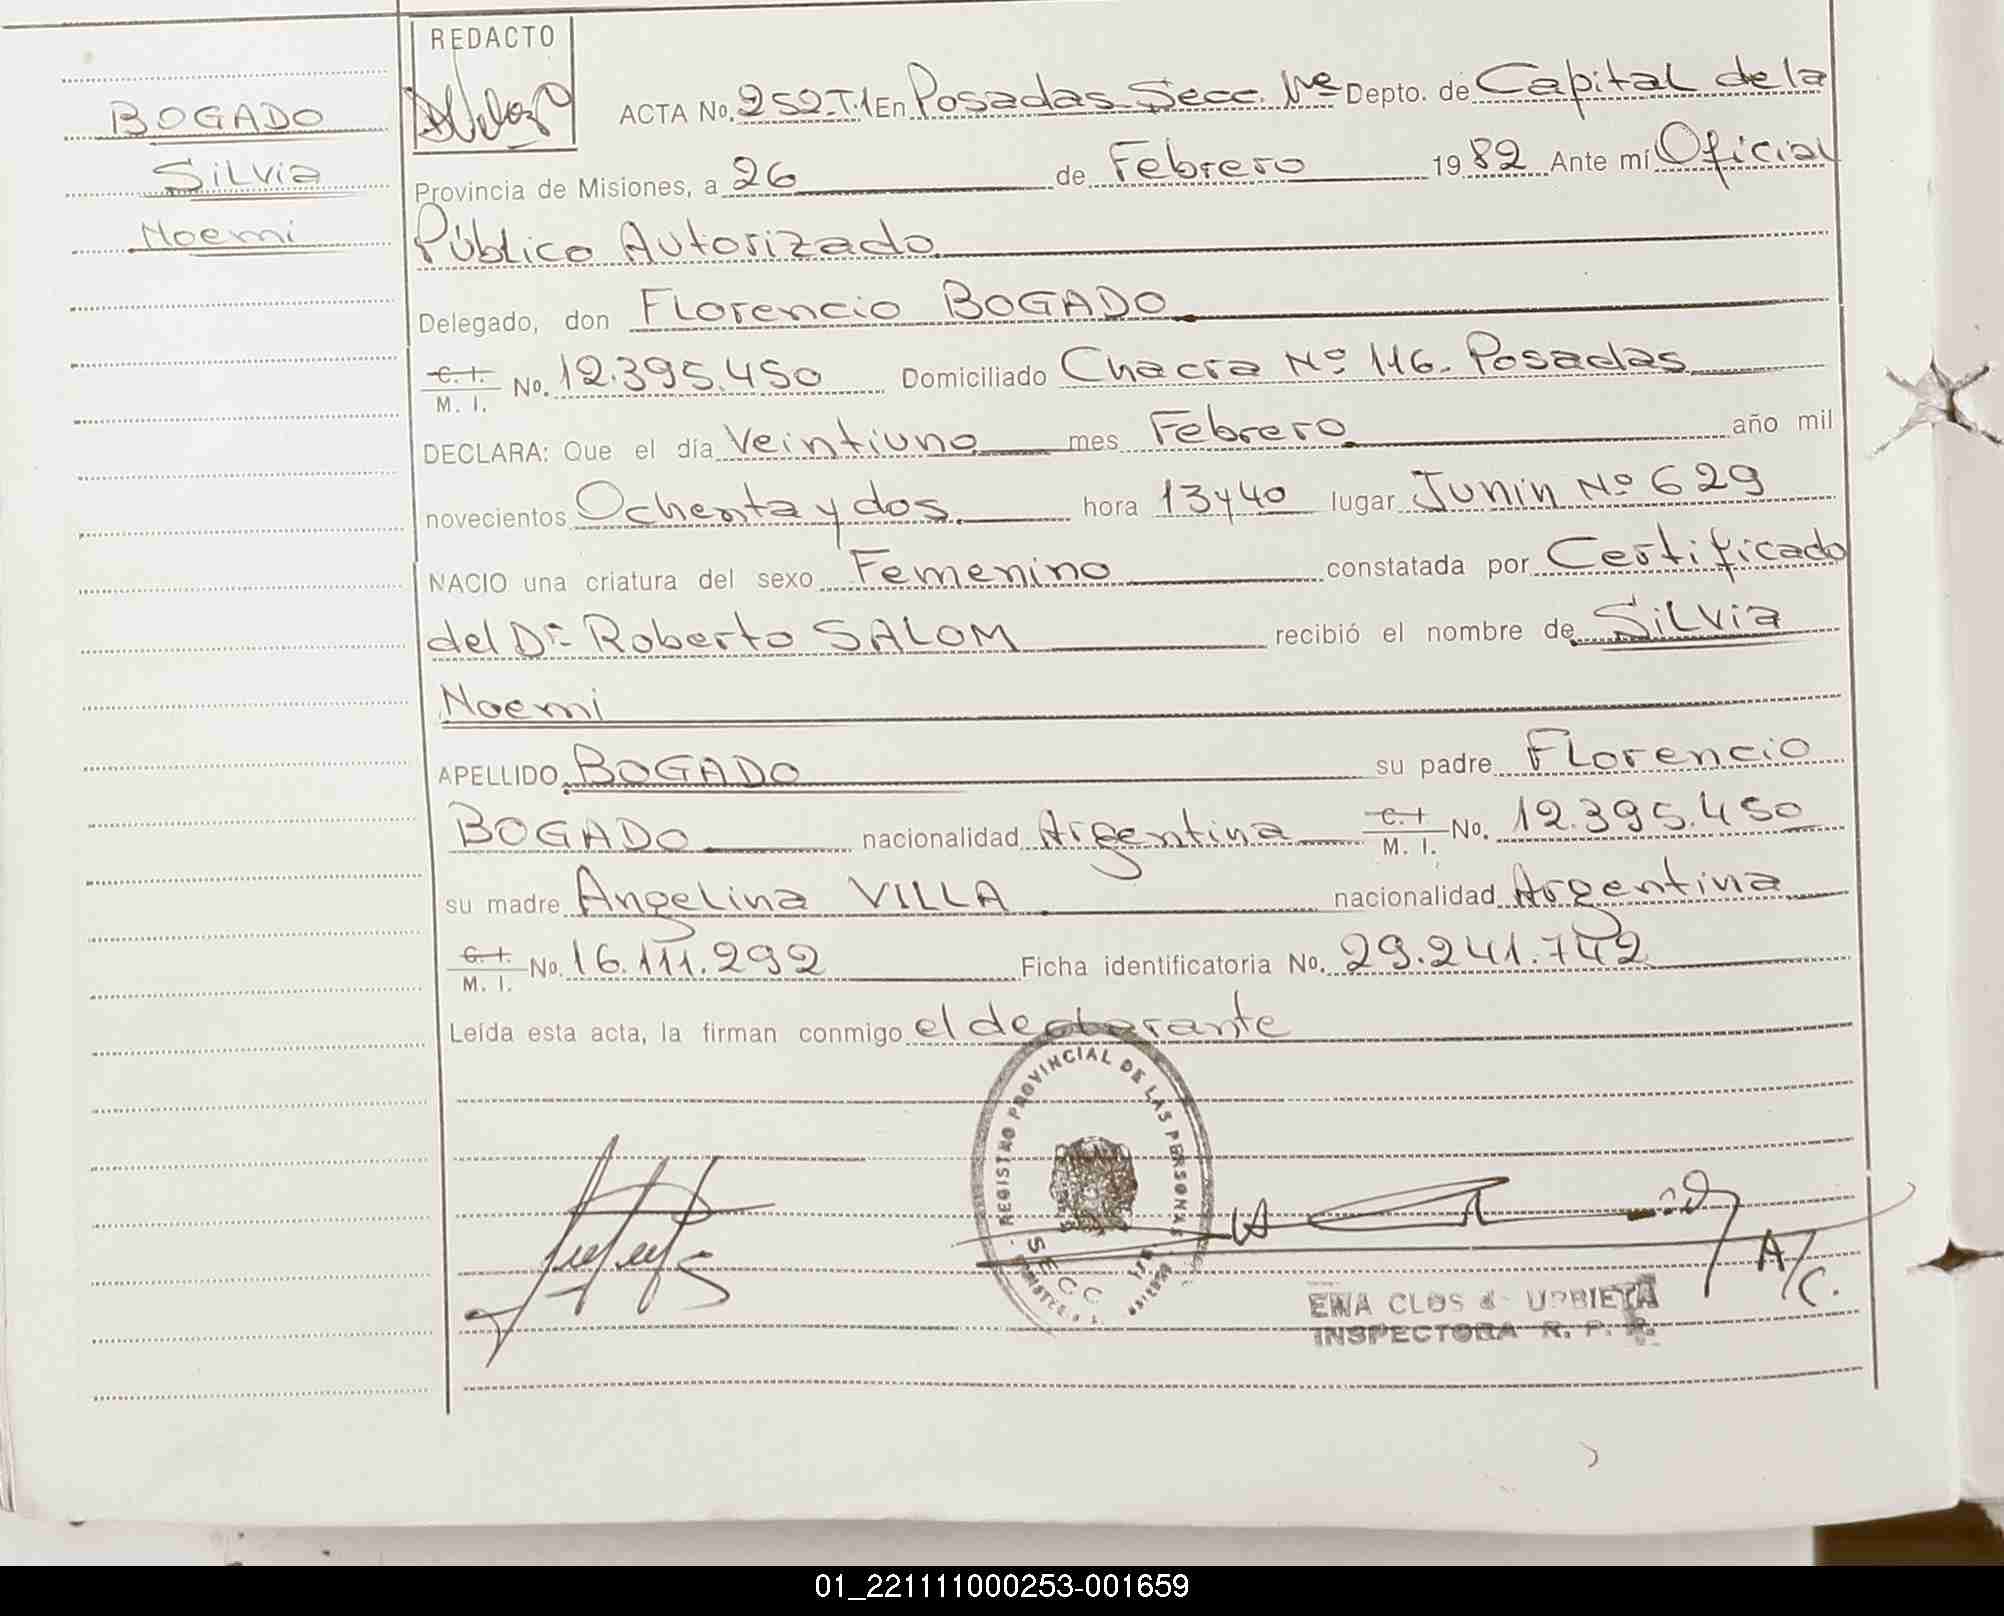 BOGADO
Silvia
Noemi
REDACTO
ACTA No. 252.T.1 En Posadas Secc. 1ra Depto. de Capital de la
Provincia de Misiones, a 26 de Febrero 1982 Ante mí Oficial
Público Autorizado
Delegado, don Florencio BOGADO
C. I.
M. I. No. 12.395.450 Domiciliado Chacra Nº 116. Posadas
DECLARA: Que el día Veintiuno mes Febrero año mil
novecientos Ochenta y dos hora 13 y 40 lugar Junin Nº 629
NACIO una criatura del sexo Femenino constatada por Certificado
del Dr. Roberto SALOM recibió el nombre de Silvia
Noemi
APELLIDO BOGADO su padre Florencio
BOGADO nacionalidad Argentina C. I. M. I. No. 12.395.450
su madre Angelina VILLA nacionalidad Argentina
C. I.
M. I. No. 16.111.292 Ficha identificatoria No. 29.241.742
Leída esta acta, la firman conmigo el declarante
REGISTRO PROVINCIAL DE LAS PERSONAS
SECC. 1ra
A/C.
INSPECTORA R. P. P.
01_221111000253-001659